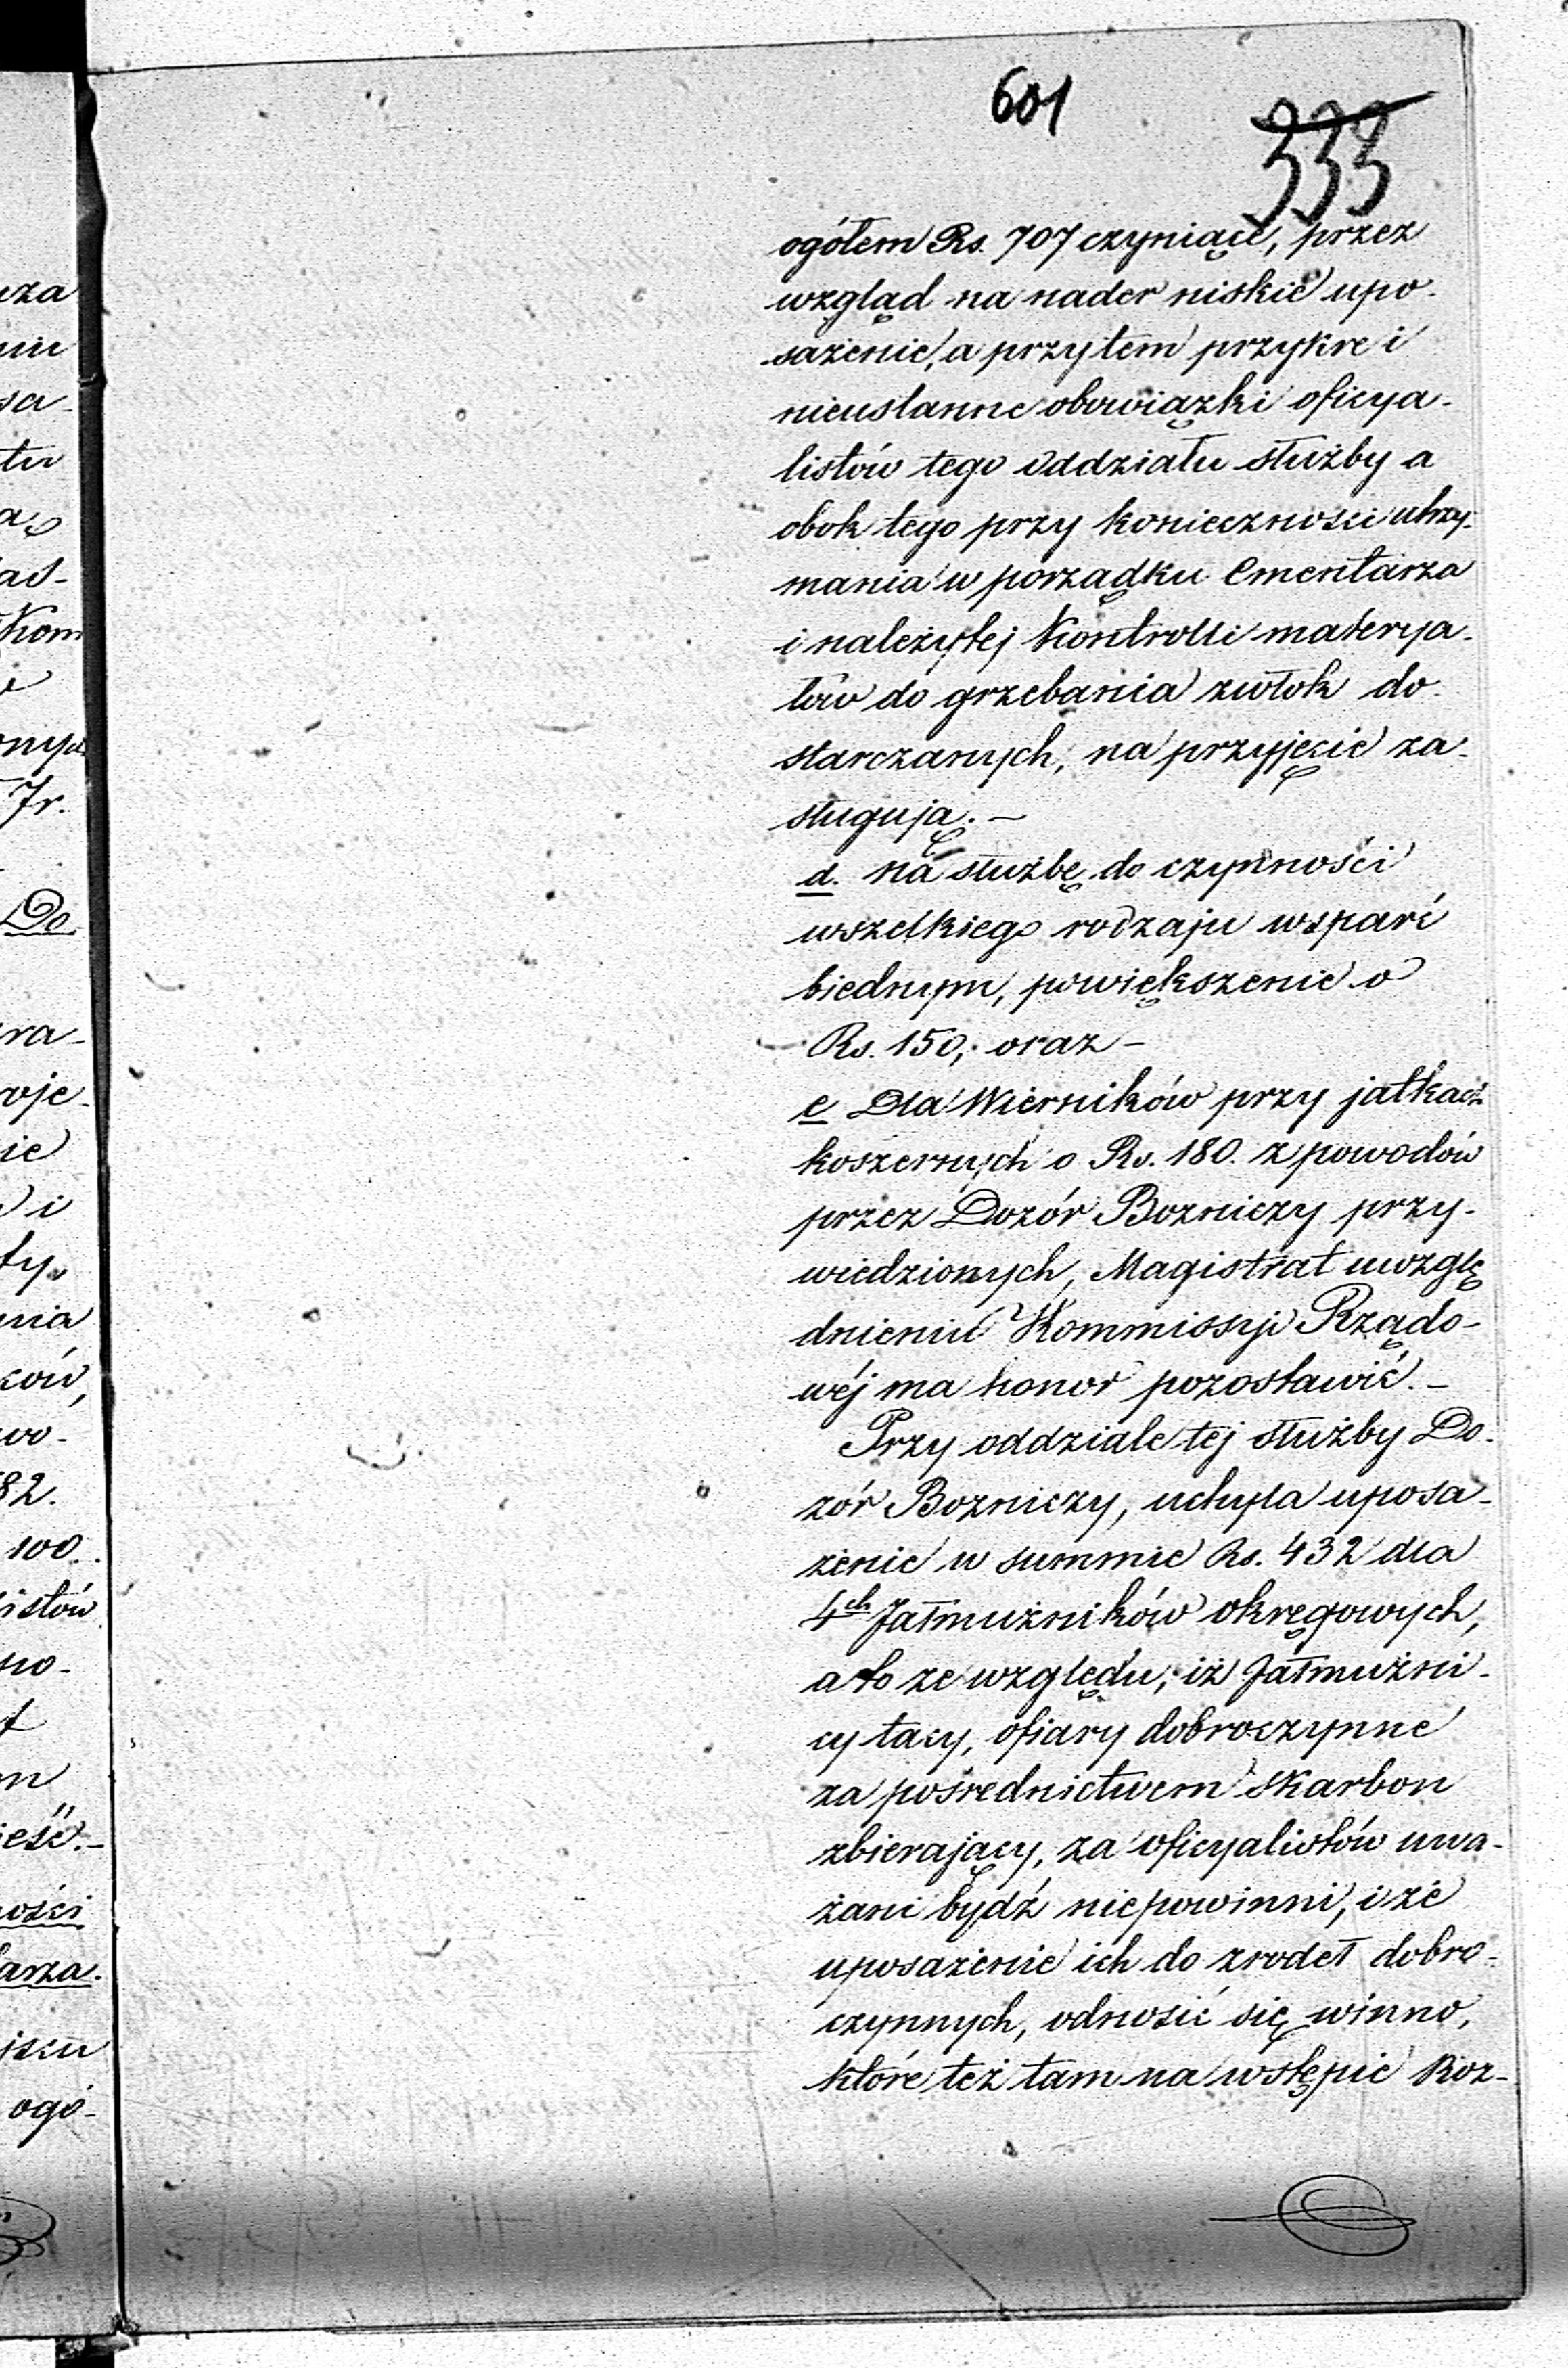 601
333
ogółem Rs. 707 czyniące, przez
wzgląd na nader niskie upo-
sażenie, a przytem przykre i
nieustanne obowiązki oficya-
listów tego oddziału służby a
obok tego przy konieczności utrzy-
mania w porządku Cmentarza
i należytej Kontrolli materya-
łów do grzebania zwłok do-
starczanych, na przyjęcie za-
sługują. —
d. na służbę do czynności
wszelkiego rodzaju wsparć
biednym, powiększenie o
Rs. 150, oraz —
e Dla Wierników przy jatkach
koszernych o Rs. 180. z powodów
przez Dozór Bozniczy przy-
wiedzionych, Magistrat uwzglę
dnieniu Kommissyi Rządo-
wéj ma honor pozostawić. —
Przy oddziale tej służby Do-
zór Bozniczy, uchyla uposa-
żenie w summie Rs. 432 dla
4ch Jałmużników okręgowych,
a to ze względu, iż Jałmużni-
cy tacy, ofiary dobroczynne
za pośrednictwem skarbon
zbierający, za oficyalistów uwa-
żani bydź niepowinni, i że
uposażenie ich do źrodeł dobro-
czynnych, odnosić się winno,
które też tam na wstępie Roz-
uza
sa-
tu
as-
Kom
Jr.
Do
ra-
oje-
ie
i
ty
nia
ków,
wo-
82.
100.
istów
po-
m
ieść. —
ności
arza.
ogó-